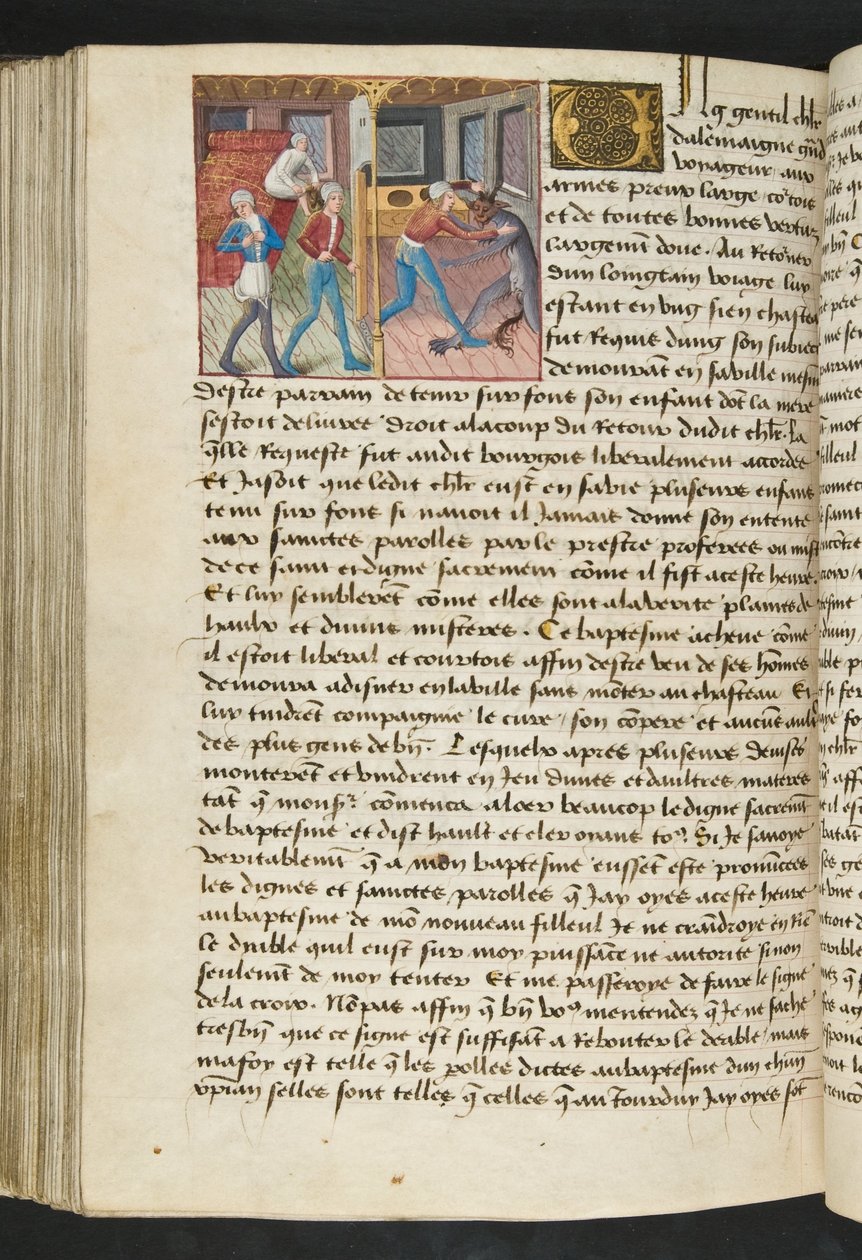 Ug gentil chlr
dalemaigne grãd
voyageur aux
armes preux large co᷑tois
et de toutes bonnes vertuz
largemt doue. Au Reto᷑ner
dun loingtain voiage luy
estant en vng sien chastea
fut Requis dung son subiect
demourãt en sa ville mesm
destre parrain de tenir sur fons son enfant dõt la mere
sestoit deliuree droit alacoup du Retour dudit chlr. La
q̃lle Requeste fut audit bourgois liberalement accordee
Et Jasoit que ledit chlr eust en sa vie pluseurs enfans
tenu sur fons si nauoit il Jamais donne son entente
aux sainctes parolles par le prestre proferees ou mist
de ce saint et digne sacrement cõme il fist a ceste heure.
Et luy semblerẽt cõme elles sont alaverite plaines de
haulx et diuins misteres. Ce baptesme acheue cõme
il estoit liberal et courtois affin destre veu de ses hõmes
demoura adisner en la ville sans mõter au chasteau Et
luy tindrẽt compaignie le cure son cõpere et aucũs aultr
des plus gens de bñ. Lesquelx apres pluseurs deuises
monterẽt et vindrent en Jeu dunes et daultres materes
tãt q̃ monsr. cõmenca aloer beaucop le digne sacremt
de baptesme et dist hault et cler oyans to9. Si Je sauoye
veritablemt q̃ a mon baptesme eussẽt este pronũcees
les dignes et sainctes parolles q̃ Jay oyes a ceste heure
au baptesme de mõ nouueau filleul Je ne craĩdroye en riẽ
le dyable quil eust sur moy puissãce ne autorite sinon
seulemt de moy tenter Et me passeroye de faire le signe
de la croix. Nõ pas affin q̃ bñ vo9 mentendez q̃ Je ne sache
tresbñ que ce signe est suffisãt a Rebouter le deable mais
ma foy est telle q̃ les polles dictes au baptesme dun chũn
xp̃ian selles sont telles q̃ celles q̃ au Jourduy Jay oyes sõt